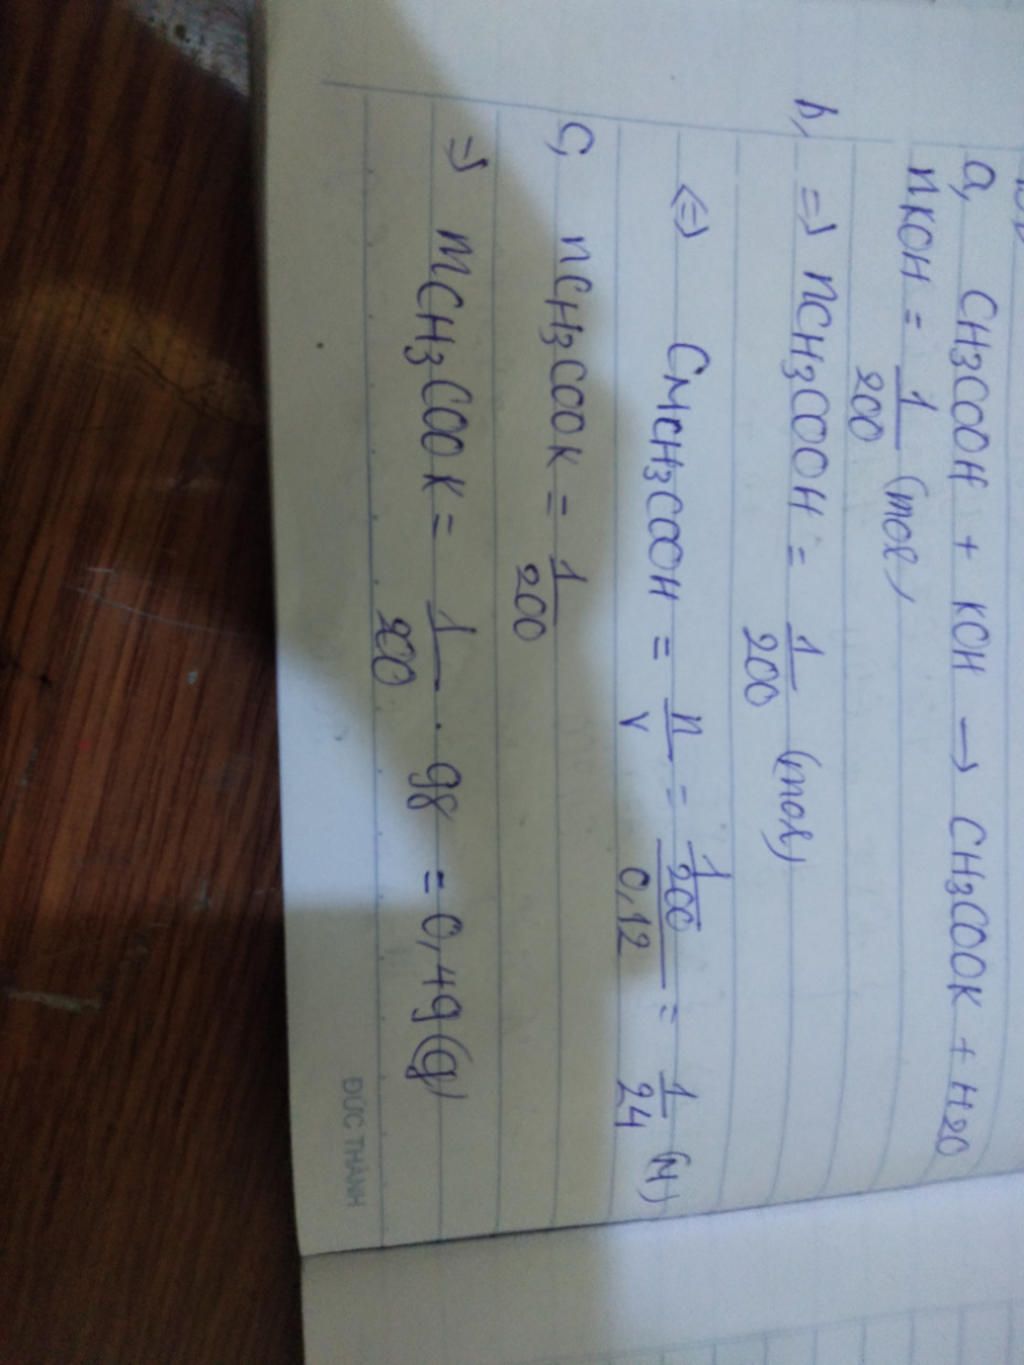 a, CH3COOH + KOH → CH3COOK + H2O
nKOH = 1/200 (mol)
b, => nCH3COOH = 1/200 (mol)
<=> CMCH3COOH = n/V = 1/200/0,12 = 1/24 (M)
c, nCH3COOK = 1/200
=> mCH3COOK = 1/200 . 98 = 0,49(g)
ĐỨC THÀNH